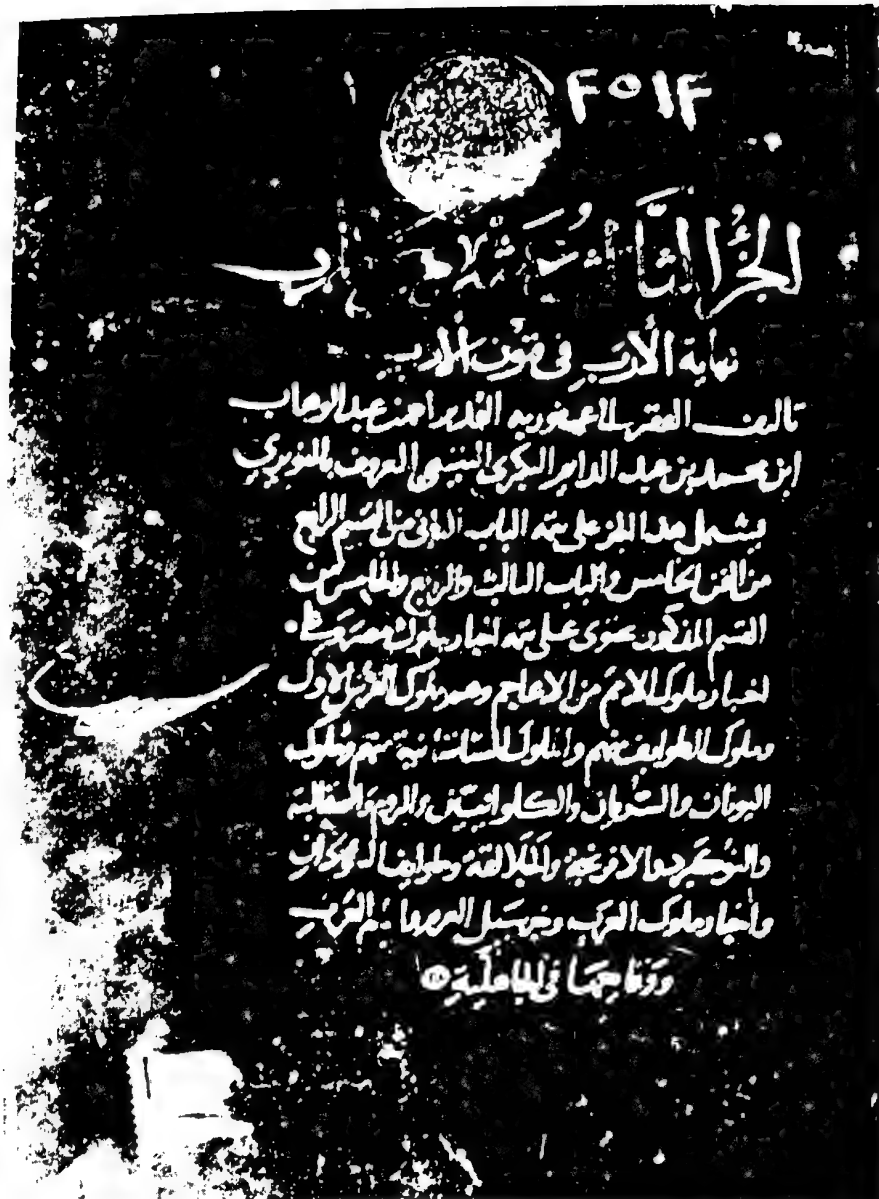 ٢٥١٢
الجزؤ الثا
نهاية الأرب في فنون الأدب
تاليف الفقير الى عفو ربه القدير احمد بن عبد الوهاب
ابن محمد بن عبد الدايم البكري التيمي المعروف بالنويري
يشتمل هذا الجز على تتمة الباب الثاني من القسم الرابع
من الفن الخامس والباب الثالث والرابع والخامس من
القسم المذكور يحتوى على تتمه اخبار ملوك مصر
اخبار ملوك الامم من الاعاجم وهم ملوك الفرس الاول
وملوك الطوايف منهم والملوك الساسانية منهم وملوك
اليونان والسريان والكلوانيين والروم والصقالبة
والنوكبرد والافرنجة والجلالقة وطوايف السودان
واخبار ملوك العرب وخبر سيل العرم وايام العرب
ووقايعها في الجاهلية